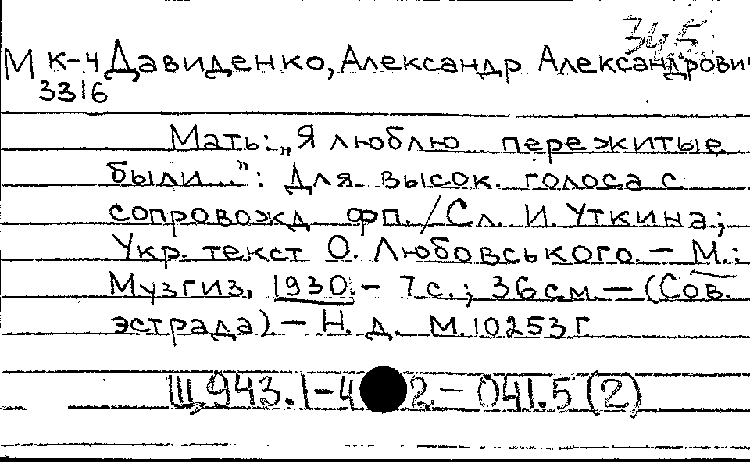 345
М к-ч Давиденко, Александр Александрович
3316
Мать: „Я люблю пережитые
были...": Для высок. голоса с
сопровожд фп. / Сл. И. Уткина;
Укр. текст О. Любовського. – М.:
Музгиз, 1930. – 7 с.; 36 см. – (Сов.
эстрада) – Н. д. М. 10253 г
Щ943.1-4 2-041.5 (2)